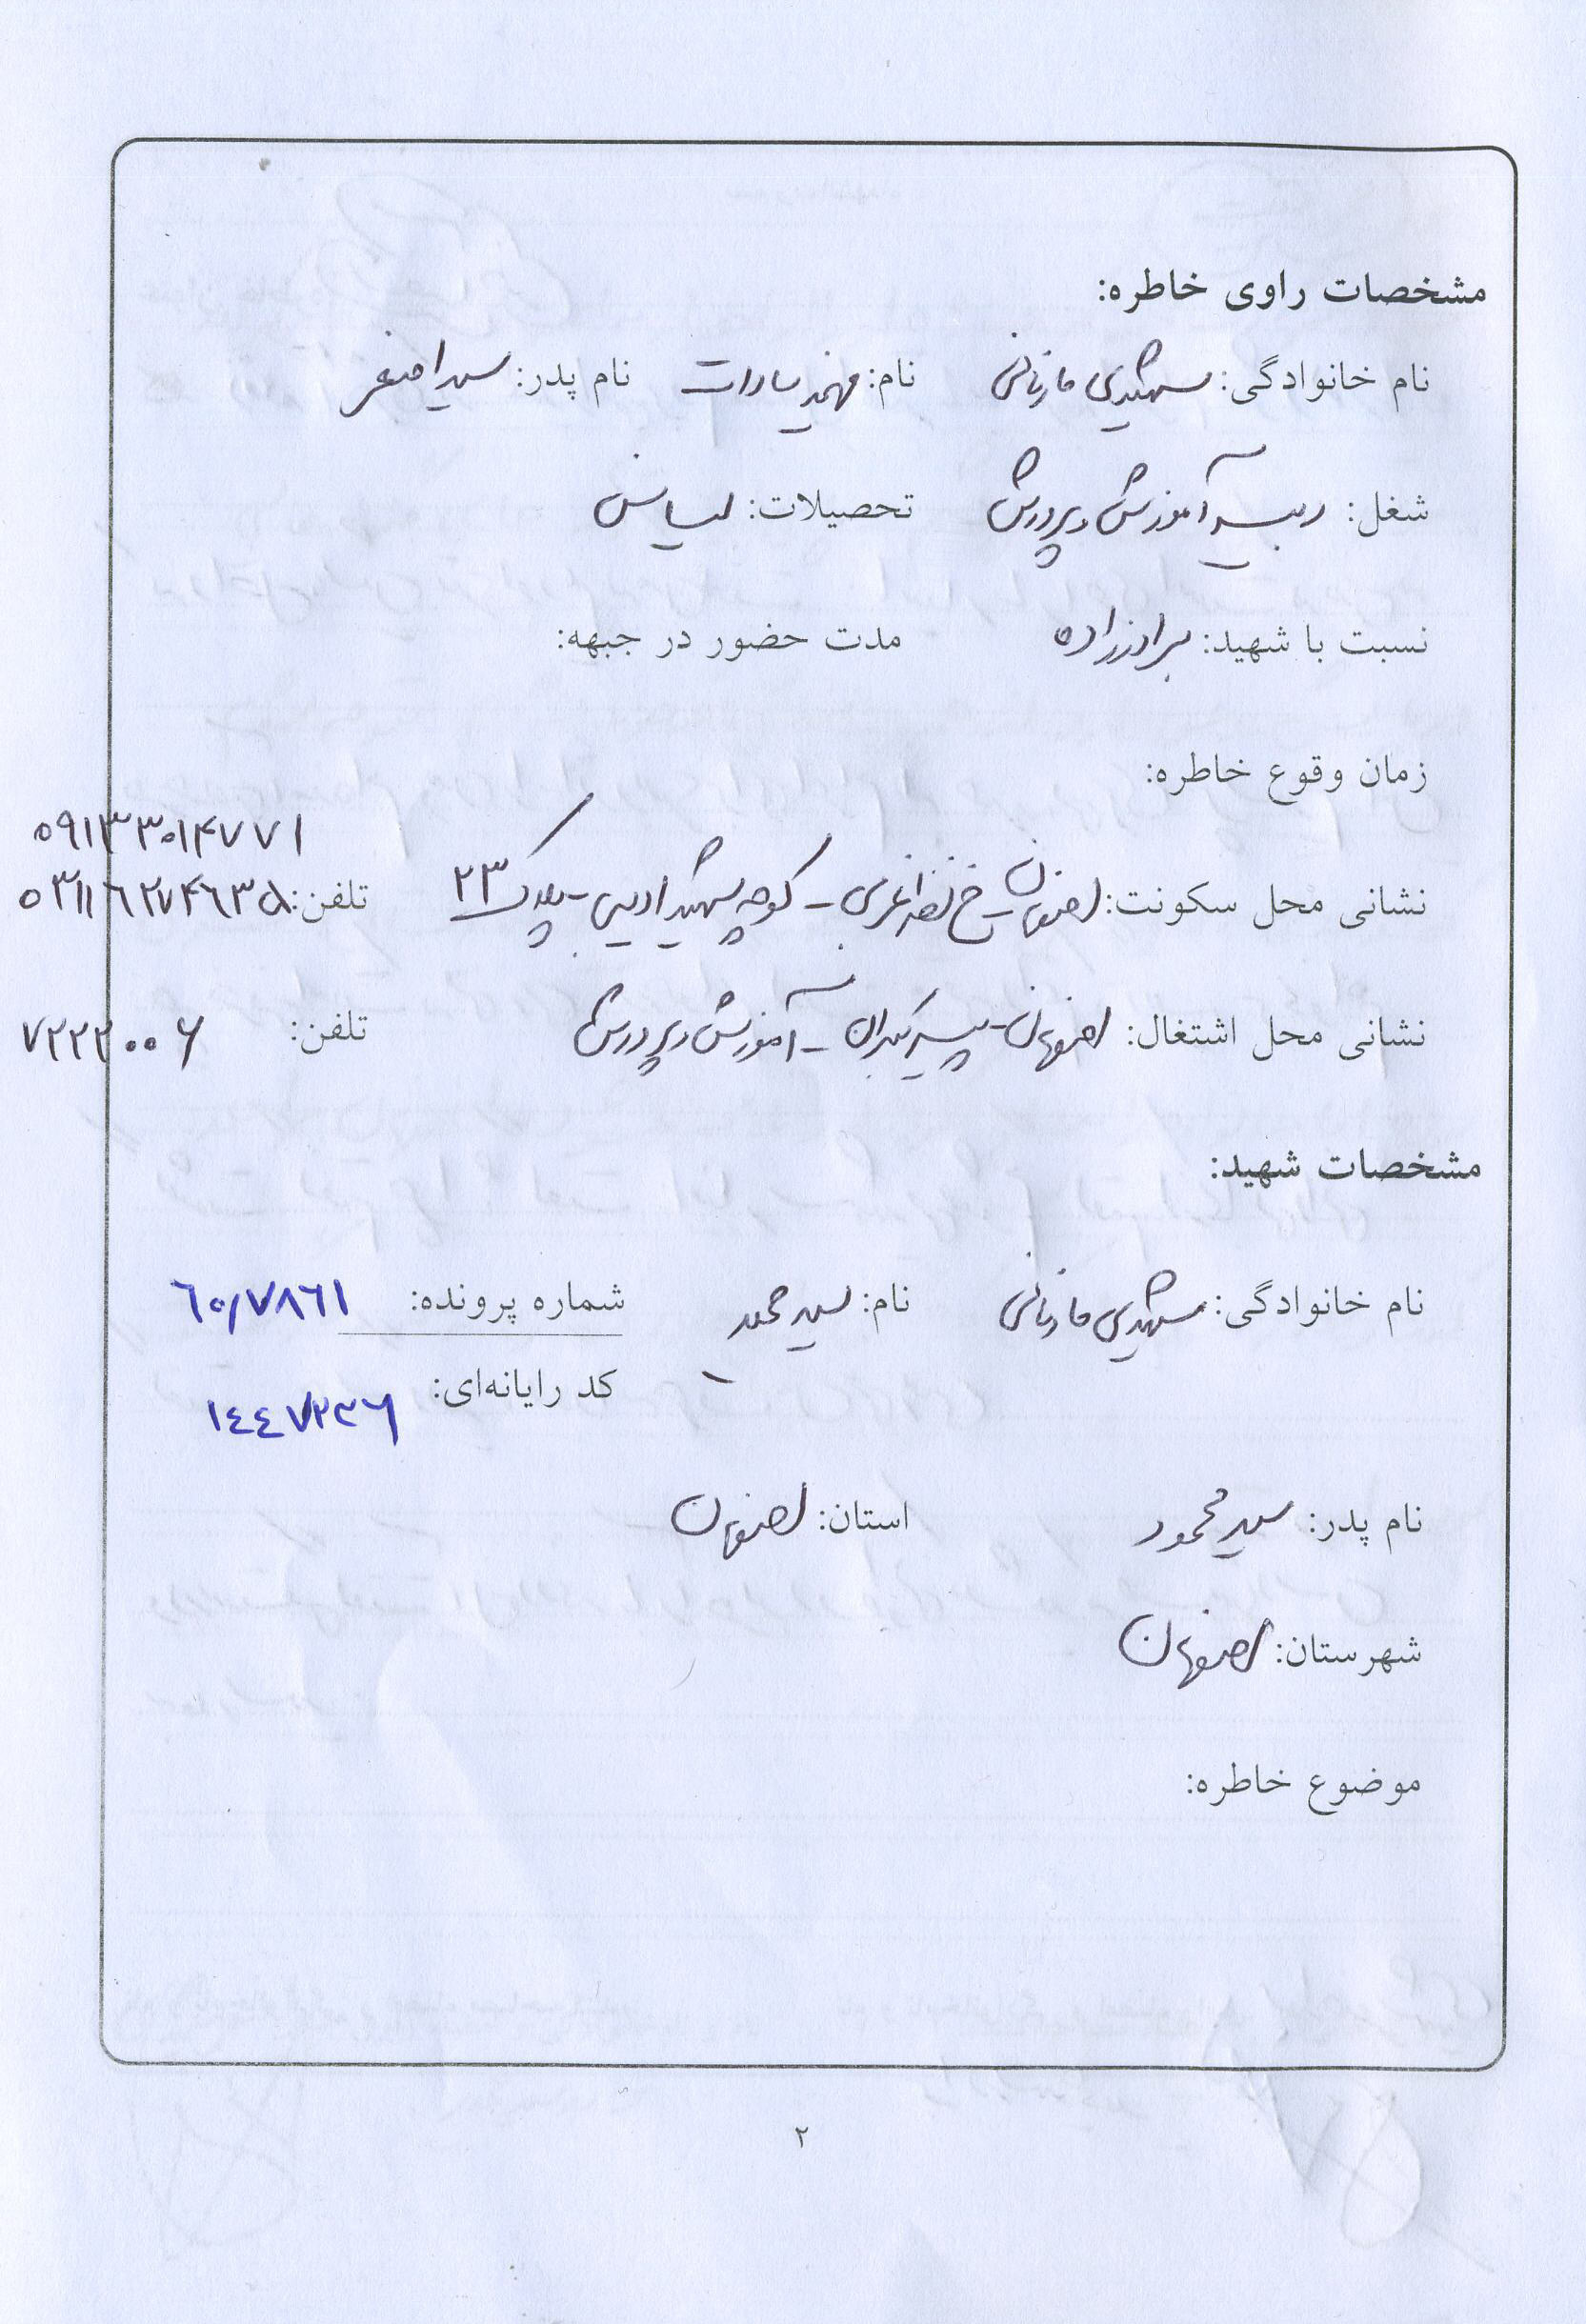 مشخصات راوی خاطره:
نام خانوادگی: شهیدی مارنانی نام: فهیمه سادات نام پدر: سید اصغر
شغل: دبیر آموزش و پرورش تحصیلات: لیسانس
نسبت با شهید: برادرزاده مدت حضور در جبهه:
زمان وقوع خاطره:
۰۹۱۳۳۰۱۴۷۷۱
نشانی محل سکونت: اصفهان خ غربی - کوچه شهید ادیبی - پلاک ۲۳ تلفن: ۰۳۱۱۶۲۷۴۶۳۵
نشانی محل اشتغال: اصفهان - پیربکران - آموزش و پرورش تلفن: ۷۲۲۲۰۰۶
مشخصات شهید:
نام خانوادگی: شهیدی مارنانی نام: سید شماره پرونده: ٦٠/٧٨٦١
کد رایانه‌ای: ١٤٤٧٢٣٦
نام پدر: سید محمود استان: اصفهان
شهرستان: اصفهان
موضوع خاطره:
۲